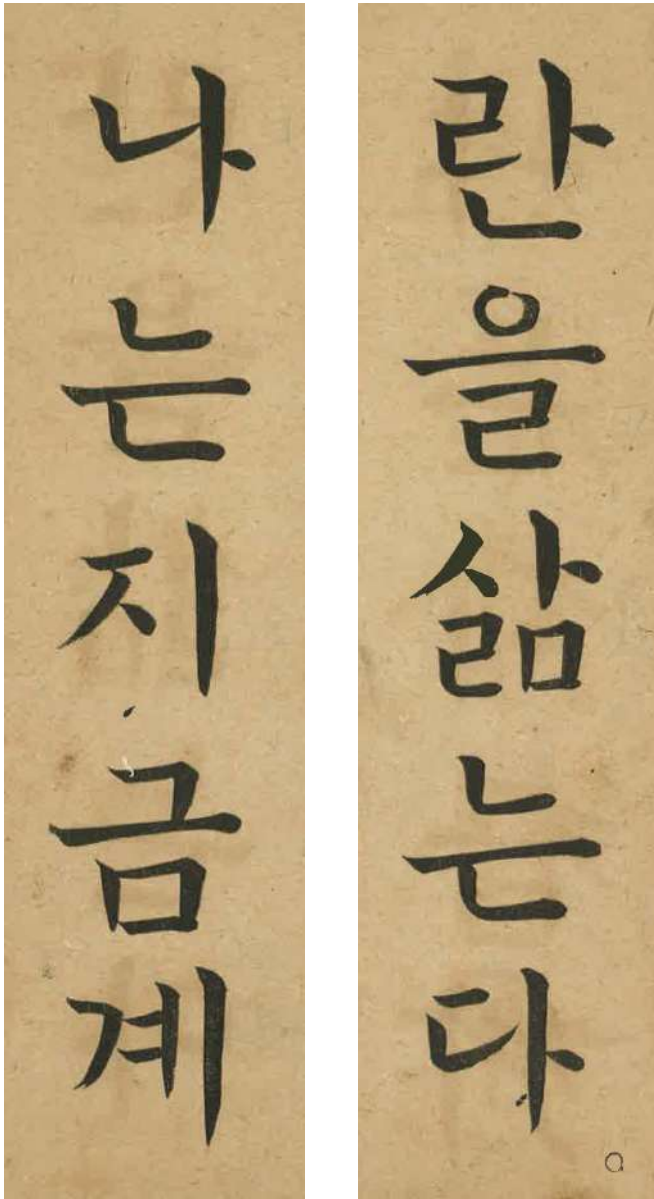 나는지금계
란을삶는다